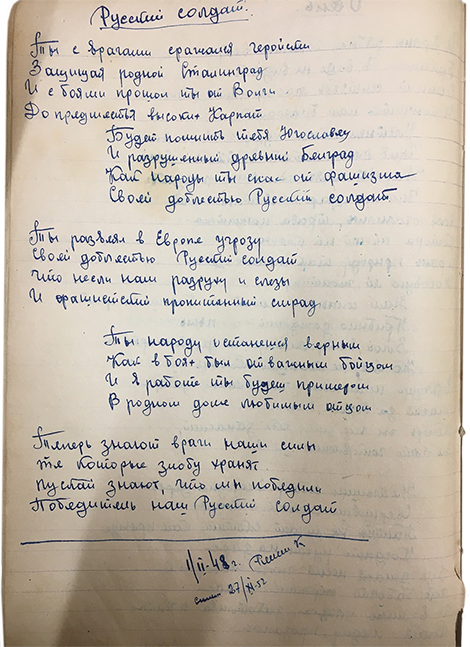 Русский солдат.
Ты с врагами сражался геройски
Защищая родной Сталинград
И с боями прошол ты от Волги
До предместья высоких Карпат
Будет помнить тебя Югославия
И разрушенный древний Белград
Как народы ты спас от фашизма
Своей доблестью Русский солдат
Ты развеял в Европе угрозу
Своей доблестью Русский солдат
Что несли нам разруху и слезы
И фашистский смрад
Ты народу останешся верным
Как в боях был отважным бойцом
И в работе ты будеш примером
В родном доме любимым отцом
Теперь знают враги наши силы
те которые злобу хранят
пускай знают, что мы победили
Победитель наш Русский солдат
1/II-48 г.
27/XI-52